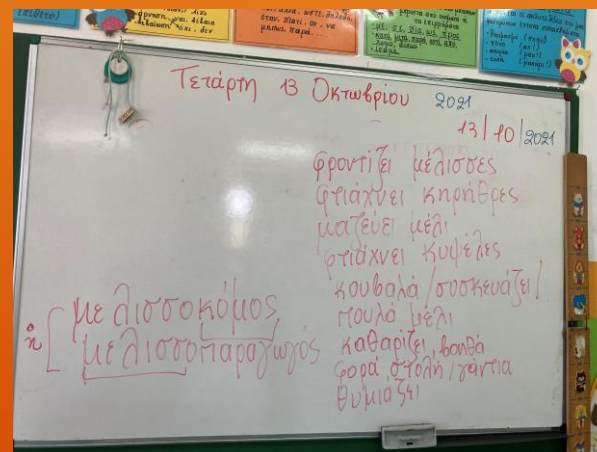 επίθετο)
Τετάρτη 13 Οκτωβρίου 2021
13/10/2021
φροντίζει μέλισσες
φτιάχνει κηρήθρες
μαζεύει μέλι
φτιάχνει κυψέλες
κουβαλά/συσκευάζει/
πουλά μέλι
καθαρίζει, βοηθά
φορά στολή/γάντια
θυμιάζει
ο
η
μελισσοκόμος
μελισσοπαραγωγός